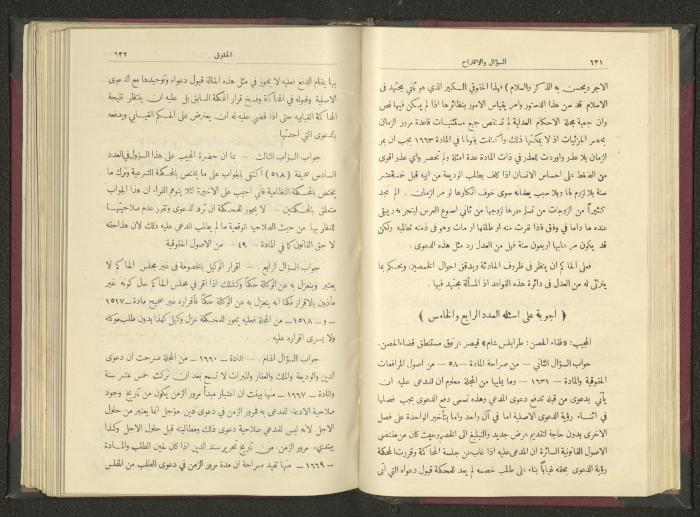 ٦٣١ السؤال والاقتراح
الاجر ومحسن به الذكر والسلام) فهذا الحقوقي الكبير الذي هو ثاني مجتهد في
الاسلام قد سن هذا الدستور وامر بقياس الامور بنظائرها اذا لم يمكن فيها نص
وان جمعية مجلة الاحكام العدلية لم تستقص جميع مستثنيات قاعدة مرور الزمان
الجزئيات اذ لا يمكنها ذلك واكتفت بقولها في المادة ١٦٦٣ يجب ان يمر
الزمان بلا عذر واوردت للعذر في ذات المادة عدة امثلة ولم تحصر واي عذر اقوى
من الضغط على احساس الانسان اذا كلف بطلب الوديعة من ابيه قبل خمسة عشر
سنة بلا لزوم لها وبلا سبب يعلمانه سوى خوف انكارها لو مر الزمان . الم نجد
كثيراً من الزوجات من تسلم مهرها لزوجها من ثاني اسبوع العرس ليتجر به ويبقى
عنده ما داما في وفق فاذا نفرت منه او طلقها او مات وهو في ذمته تطالبه ولكن
قد يكون مر عليها اربعون سنة فهل من العدل رد مثل هذه الدعوى .
فعلى الحاكم ان ينظر في ظروف الحادثة ويدقق احوال الخصمين ويحكم بما
يترأى له من العدل في دائرة هذه القواعد اذ المسألة مجتهد فيها .
﴿ اجوبة على اسئلة العدد الرابع والخامس ﴾
المجيب: «قضاء الحصن: طرابلس شام» قيصر رتوق مستنطق قضاء الحصن.
جواب السؤال الثاني — من صراحة المادة —٥٨— من اصول المرافعات
الحقوقية والمادة — ١٦٣١ — وما يليها من المجلة معلوم ان للمدعى عليه ان
يأتي بدعوى من قبله تدفع دعوى المدعي وهذه تسمى دفع الدعوى يجب فصلها
في اثناء رؤية الدعوى الاصلية اما في آن واحد واما بتأخير الواحدة على فصل
الاخرى بدون حاجة لتقديم عرض جديد والتبليغ الى الخصم وحيث كان من مقتضى
الاصول القانونية السائرة ان المدعى عليه اذا غاب عن جلسة المحاكمة وقررت المحكمة
رؤية الدعوى بحقه غياباً بناء على طلب خصمه لم يعد للمحكمة قبول دعواه التي اتى
الحقوق ٦٣٢
بها بمقام الدفع فعليه لا يجوز في مثل هذه الحالة قبول دعواه وتوحيدها مع الدعوى
الاصلية وقبوله في المحاكمة وفسخ قرار المحكمة السابق بل عليه ان ينتظر نتيجة
المحاكمة الغيابيه حتى اذا قضي عليه له ان يعترض على الحكم الغيابي وبدفعه
بالدعوى التي احدثها .
جواب السؤال الثالث — بما ان حضرة المجيب على هذا السؤال في العدد
السادس صحيفة (٥١٨) اكتفى بالجواب على ما يختص بالمحكمة الشرعية وترك ما
يختص بالمحكمة النظامية فاني اجيب على الاخيرة لئلا يتوهم القراء ان هذا الجواب
متعلق بالمحكمتين — لا يجوز للمحكمة ان ترد الدعوى وتقرر عدم صلاحيتها
للنظر بها من حيث الصلاحية الوقعية ما لم يطلب المدعى عليه ذلك لان هذا حقه
لا حق القانون كما في المادة — ٤٩ — من الاصول الحقوقية
جواب السؤال الرابع — اقرار الوكيل بالخصومة في غير مجلس الحاكم لا
يعتبر وينعزل به عن الوكالة حكماً وكذلك اذا اقر في مجلس الحاكم حال كونه غير
مأذون بالاقرار فكما انه ينعزل به عن الوكالة حكماً فأقراره غير صحيح مادة —١٥١٧
— و —١٥١٨— من المجلة فعليه يجوز للمحكمة عزل وكيل كهذا بدون طلب موكله
ولا يسري اقراره عليه .
جواب السؤال — المادة — ١٦٦٠ — من المجلة صرحت ان دعوى
الدين والوديعة والملك والعقار والميراث لا تسمع بعد ان تركت خمس عشرة سنة
والمادة — ١٦٦٧ — منها بينت ان اعتبار مبدأ مرور الزمن يكون من تاريخ وجود
صلاحية الادعاء للمدعي به فمرور الزمن في دعوى دين مؤجل انما يعتبر من حلول
الاجل لانه ليس للمدعي صلاحية دعوى ذلك ومطالبته قبل حلول الاجل وكذا
يبتدي مرور الزمن من تاريخ تحرير سند الدين اذا كان لحين الطلب والمادة
— ١٦٦٩ — منها تفيد صراحة ان مدة مرور الزمن في دعوى الطلب من المفلس